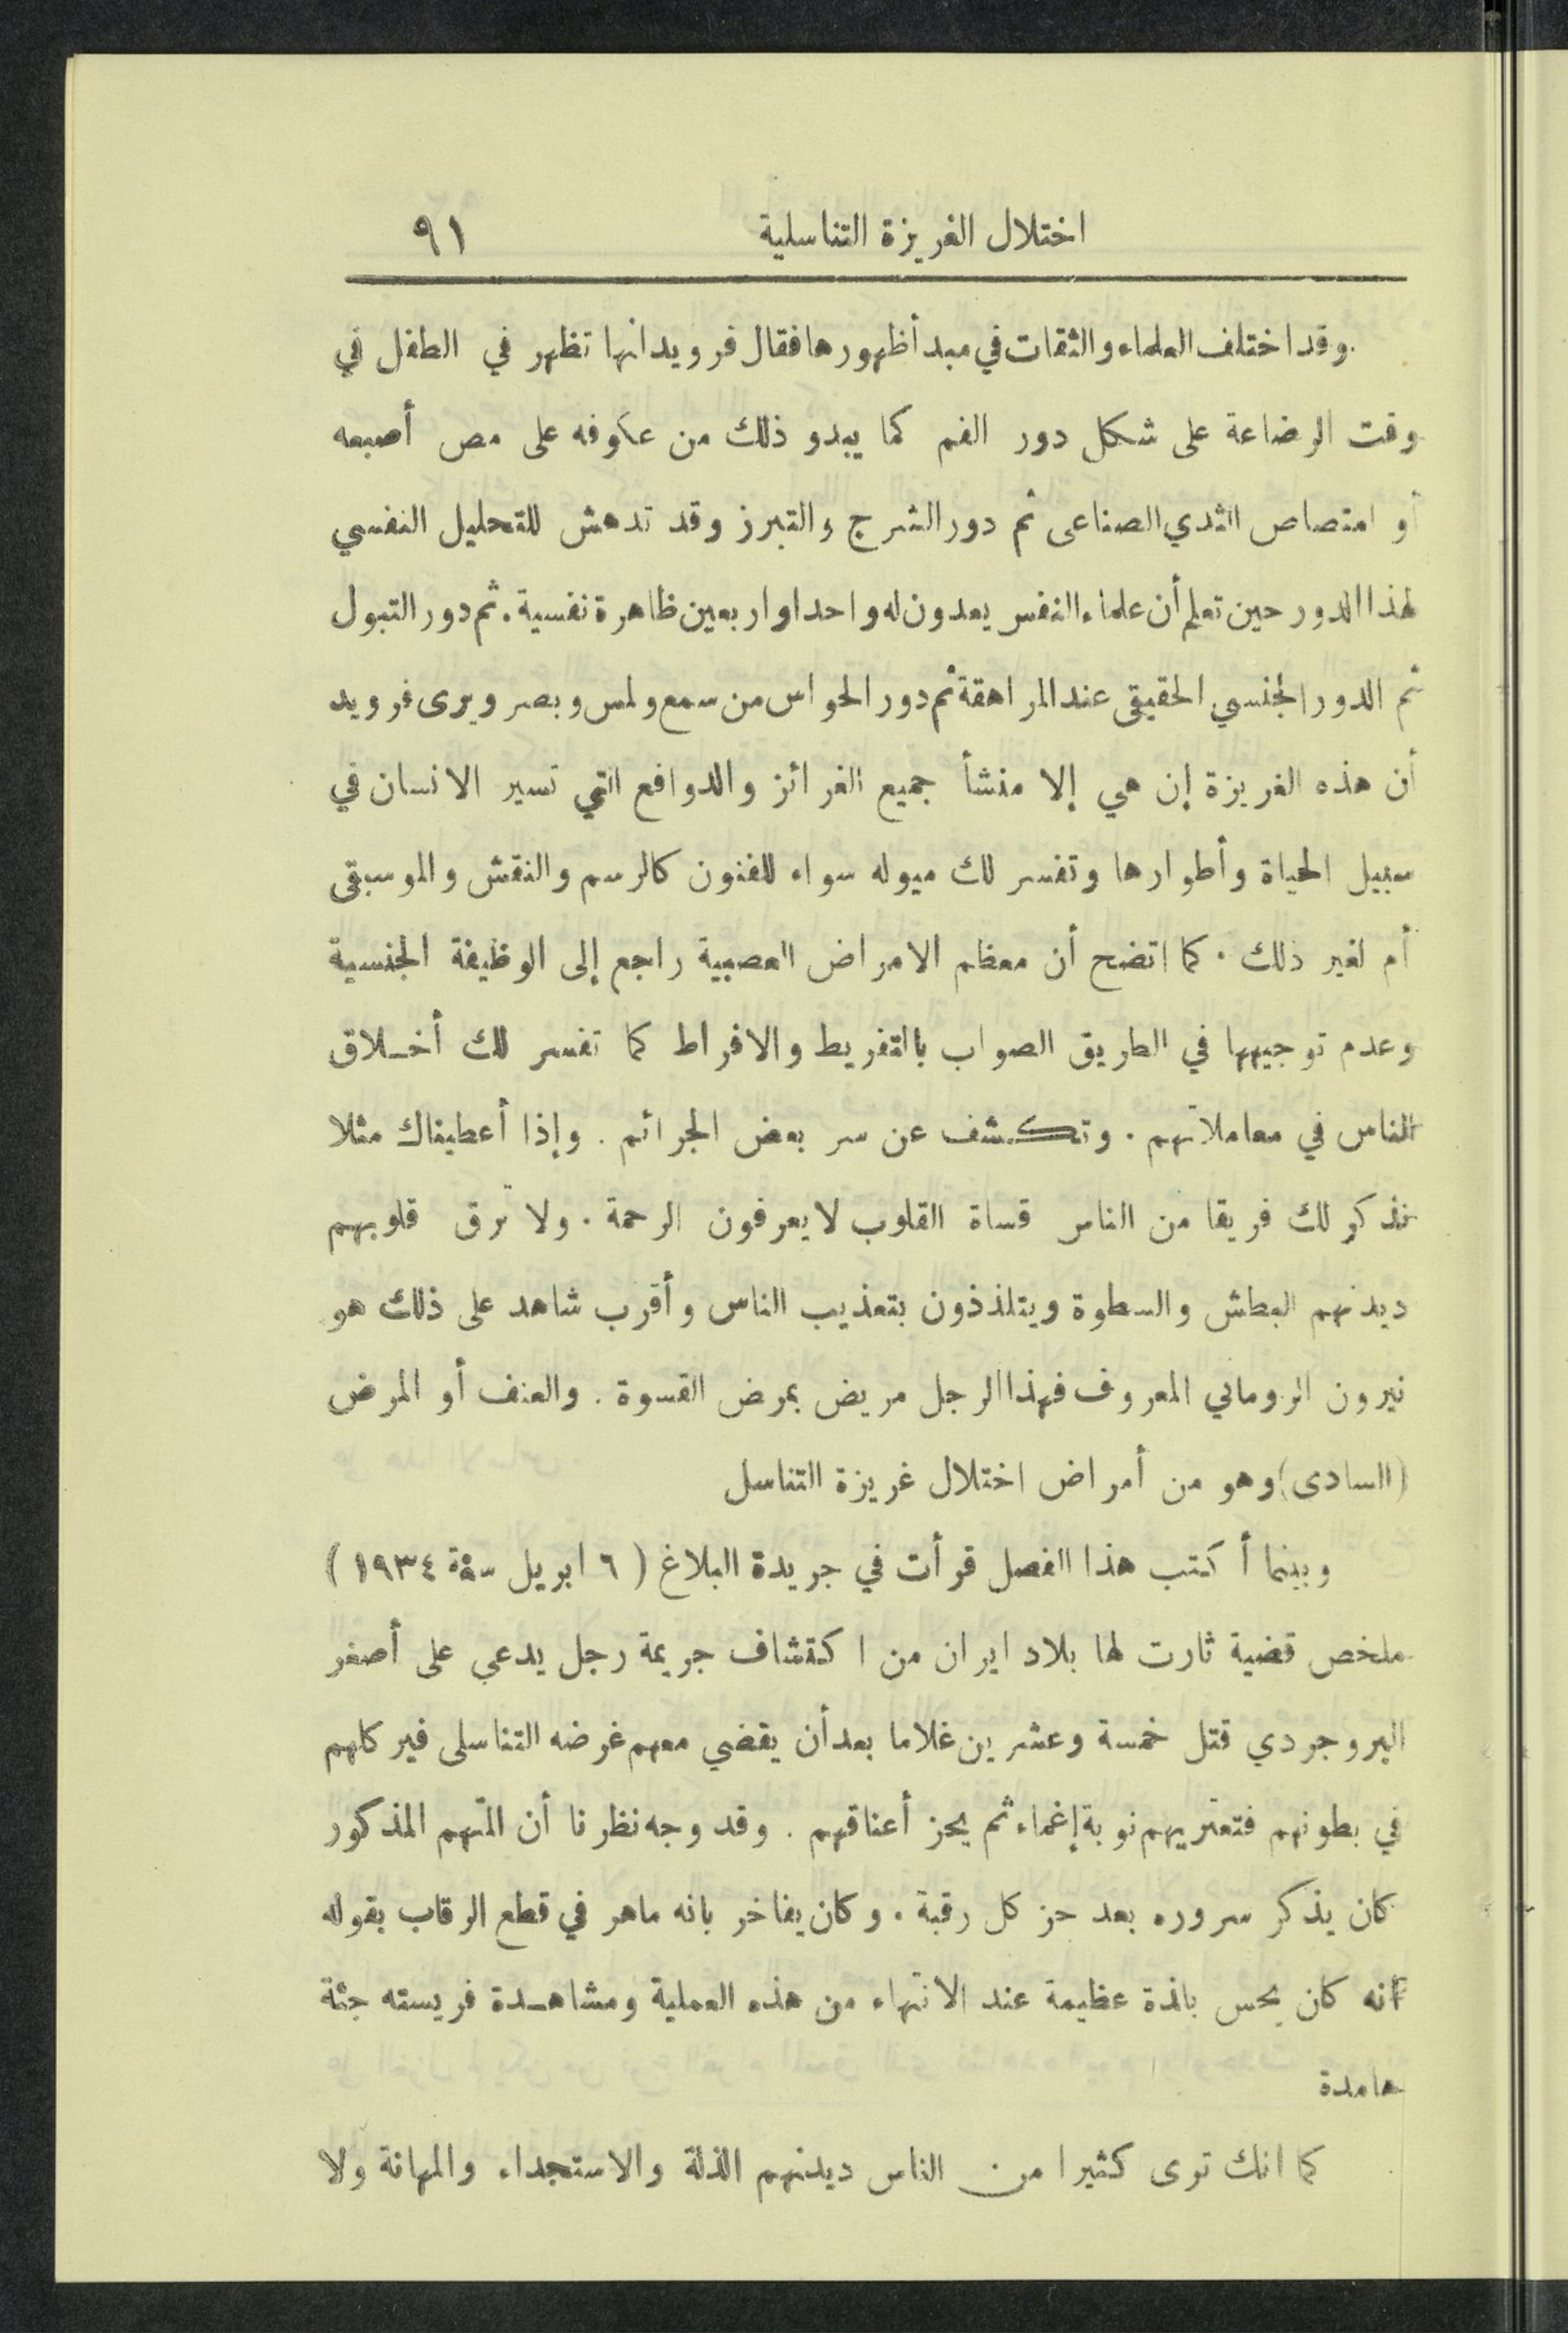 اختلال الغريزة التناسلية ٩١
وقد اختلف العلماء والثقات في مبدأ ظهورها فقال فرويد انها تظهر في الطفل في
وقت الرضاعة على شكل دور الفم كما يبدو ذلك من عكوفه على مص أصبعه
أو امتصاص الثدي الصناعى ثم دور الشرج والتبرز وقد تدهش للتحليل النفسي
لهذا الدور حين تعلم أن علماء النفس يعدون له واحدا واربعين ظاهرة نفسية. ثم دور التبول
ثم الدور الجنسي الحقيقى عند المراهقة ثم دور الحواس من سمع ولمس وبصر ويرى فرويد
أن هذه الغريزة إن هي إلا منشأ جميع الغرائز والدوافع التي تسير الانسان في
سبيل الحياة وأطوارها وتفسر لك ميوله سواء للفنون كالرسم والنقش والموسيقى
أم لغير ذلك. كما اتضح أن معظم الامراض العصبية راجع إلى الوظيفة الجنسية
وعدم توجيهها في الطريق الصواب بالتفريط والافراط كما تفسر لك أخلاق
الناس في معاملاتهم. وتكشف عن سر بعض الجرائم. وإذا أعطيناك مثلا
نذكر لك فريقا من الناس قساة القلوب لا يعرفون الرحمة. ولا ترق قلوبهم
ديدنهم البطش والسطوة ويتلذذون بتعذيب الناس وأقرب شاهد على ذلك هو
نيرون الروماني المعروف فهذا الرجل مريض بمرض القسوة. والعنف أو المرض
(السادى) وهو من أمراض اختلال غريزة التناسل
وبينما أكتب هذا الفصل قرأت في جريدة البلاغ (٦ ابريل سنة ١٩٣٤)
ملخص قضية ثارت لها بلاد ايران من اكتشاف جريمة رجل يدعي على أصغر
البروجردي قتل خمسة وعشرين غلاما بعد أن يقضي معهم غرضه التناسلى فيركلهم
في بطونهم فتعتريهم نوبة إغماء ثم يحز أعناقهم. وقد وجه نظرنا أن المتهم المذكور
كان يذكر سروره بعد حز كل رقبة. وكان يفاخر بانه ماهر في قطع الرقاب بقوله
انه كان يحس بلذة عظيمة عند الانتهاء من هذه العملية ومشاهدة فريسته جثة
هامدة
كما انك ترى كثيرا من الناس ديدنهم الذلة والاستجداء والمهانة ولا